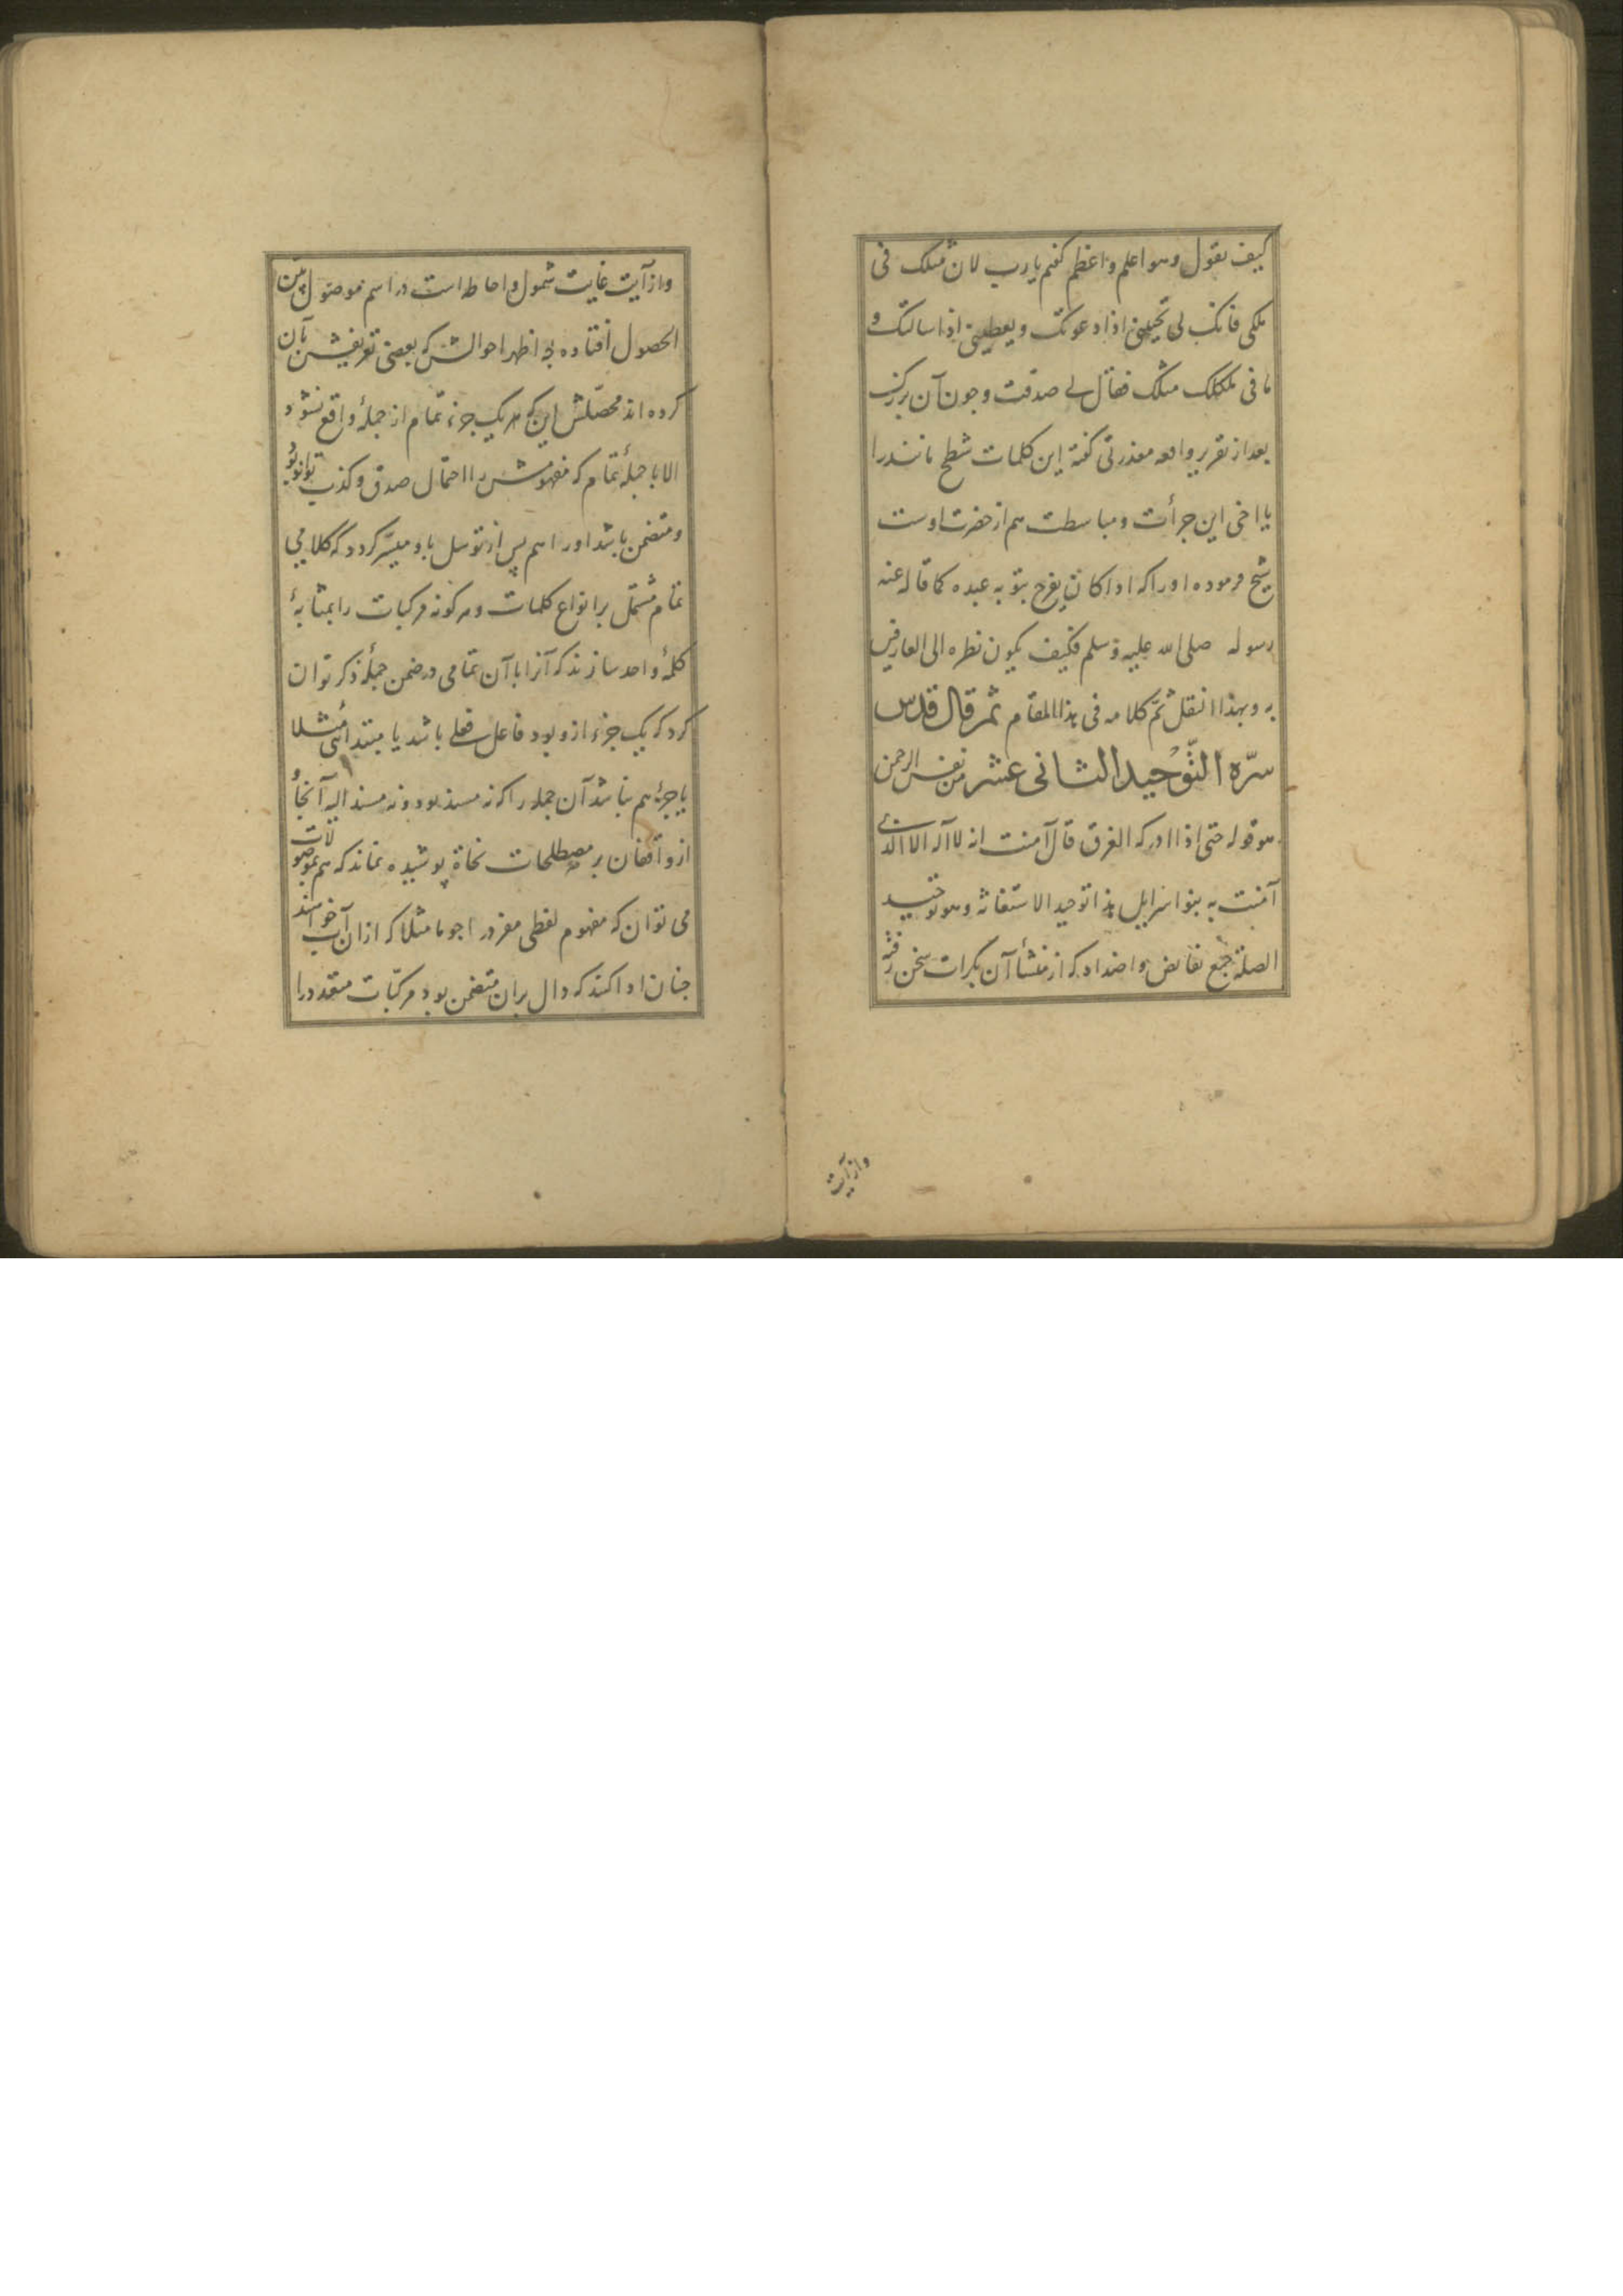 کیف تقول وهو اعلم واعظم گفتم یا رب لان مثلک فی
ملکی فانک لی تجیبنی اذا دعوتک ویعطینی اذا سالتک و
ما فی ملکک مثلک فقال لی صدقت وچون آن بزرک
بعد از تقریر واقعه معذرتی گفته این کلمات شطح مانند را
یا اخی این جرأت ومباسطت هم از حضرت اوست
شیخ فرموده اورا که اذا کان یفرح بتوبه عبده کما قاله عنه
رسوله صلی الله علیه وسلم فکیف یکون نظره الی العارفین
به وبهذا انتقل ثم کلامه فی هذا المقام ثم قال قدس
سره التوحید الثانی عشر من نفس الرحمن
هو قوله حتی اذا ادرکه الغرق قال آمنت انه لا اله الا الذی
آمنت به بنو اسرایل هذا توحید الاستغاثه وهو توحید
الصلة جمع نقایض واضداد که از منشأ آن بکرات سخن رفته
واز آیت
واز آیت غایت شمول واحاطه است در اسم موصول بین
الحصول افتاده چه اظهر احوالش که بعضی تعریفش بآن
کرده اند محصلش این که هر یک جزء تمام از جمله واقع نشود
الا با جمله تمام که مفهومش را احتمال صدق وکذب تواند بود
ومتضمن باشد اورا هم پس از توسل باو میسر کردد که کلامی
تمام مشتمل بر انواع کلمات وهر کونه مرکبات را بمثابهٔ
کلمهٔ واحد سازند که آنرا با آن تمامی در ضمن جملهٔ ذکر توان
کرد که یک جزء ازو بود فاعل فعلی باشد یا مبتدائی مثلا
یا جزء هم نباشد آن جمله را که نه مسند بود ونه مسند الیه آنجا و
از واقفان بر مصطلحات نحاة پوشیده نماند که هم بموصولات
می توان که مفهوم لفظی مفرد را جوما مثلا که از ان آب خواهند
چنان ادا کنند که دال بران متضمن بود مرکبات متعدد را